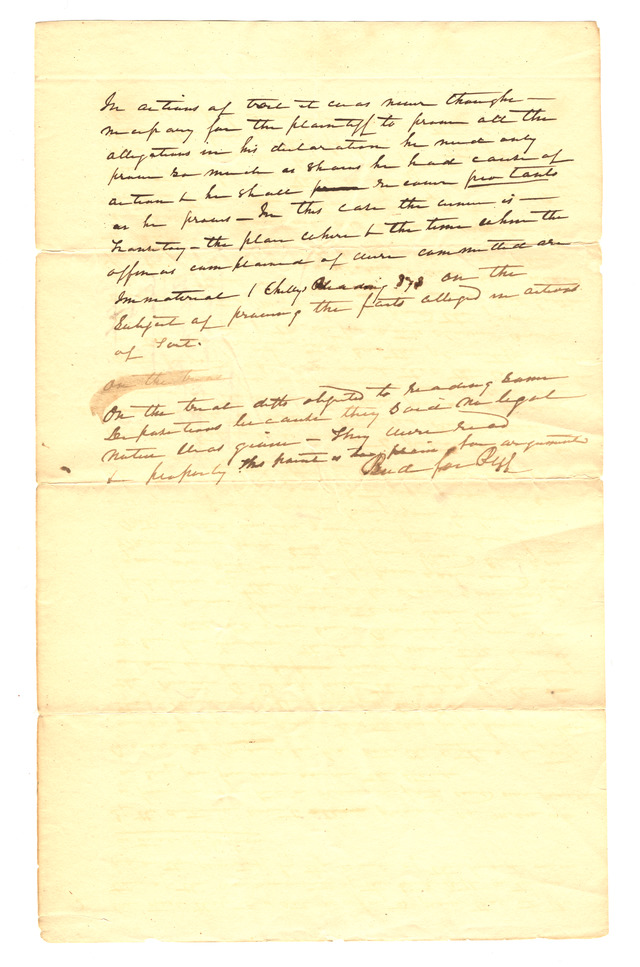 In actions of tort it was never thought –
necessary for the plaintiff to prove all the
allegations in his declaration he need only
prove so much as shows he had cause of
action & he shall recover pro tanto
as he proves – In this case the venue is –
transitory – the place where & the time when the
offences complained of were committed are
Immaterial 1 Chitty's Pleading 373 on the
Subject of proving the facts alleged in actions
of Tort.
On the trial
On the trial defts objected to reading some
Depositions because they said no legal
notice was given – They were read
& properly this point is too plain for argument
for Plff